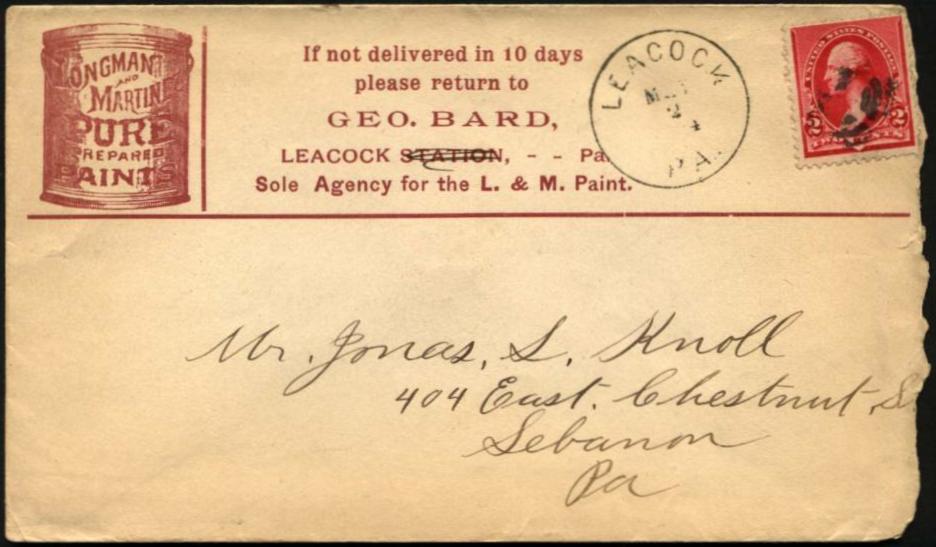 LONGMAN
AND
MARTIN
PURE
PREPARED
PAINTS
If not delivered in 10 days
please return to
GEO. BARD,
LEACOCK STATION, - - Pa.
Sole Agency for the L. & M. Paint.
LEACOCK
24
PA.
UNITED STATES POSTAGE
2 2
TWO CENTS
Mr. Jonas, S. Knoll
404 East. Chestnut S
Lebanon
Pa